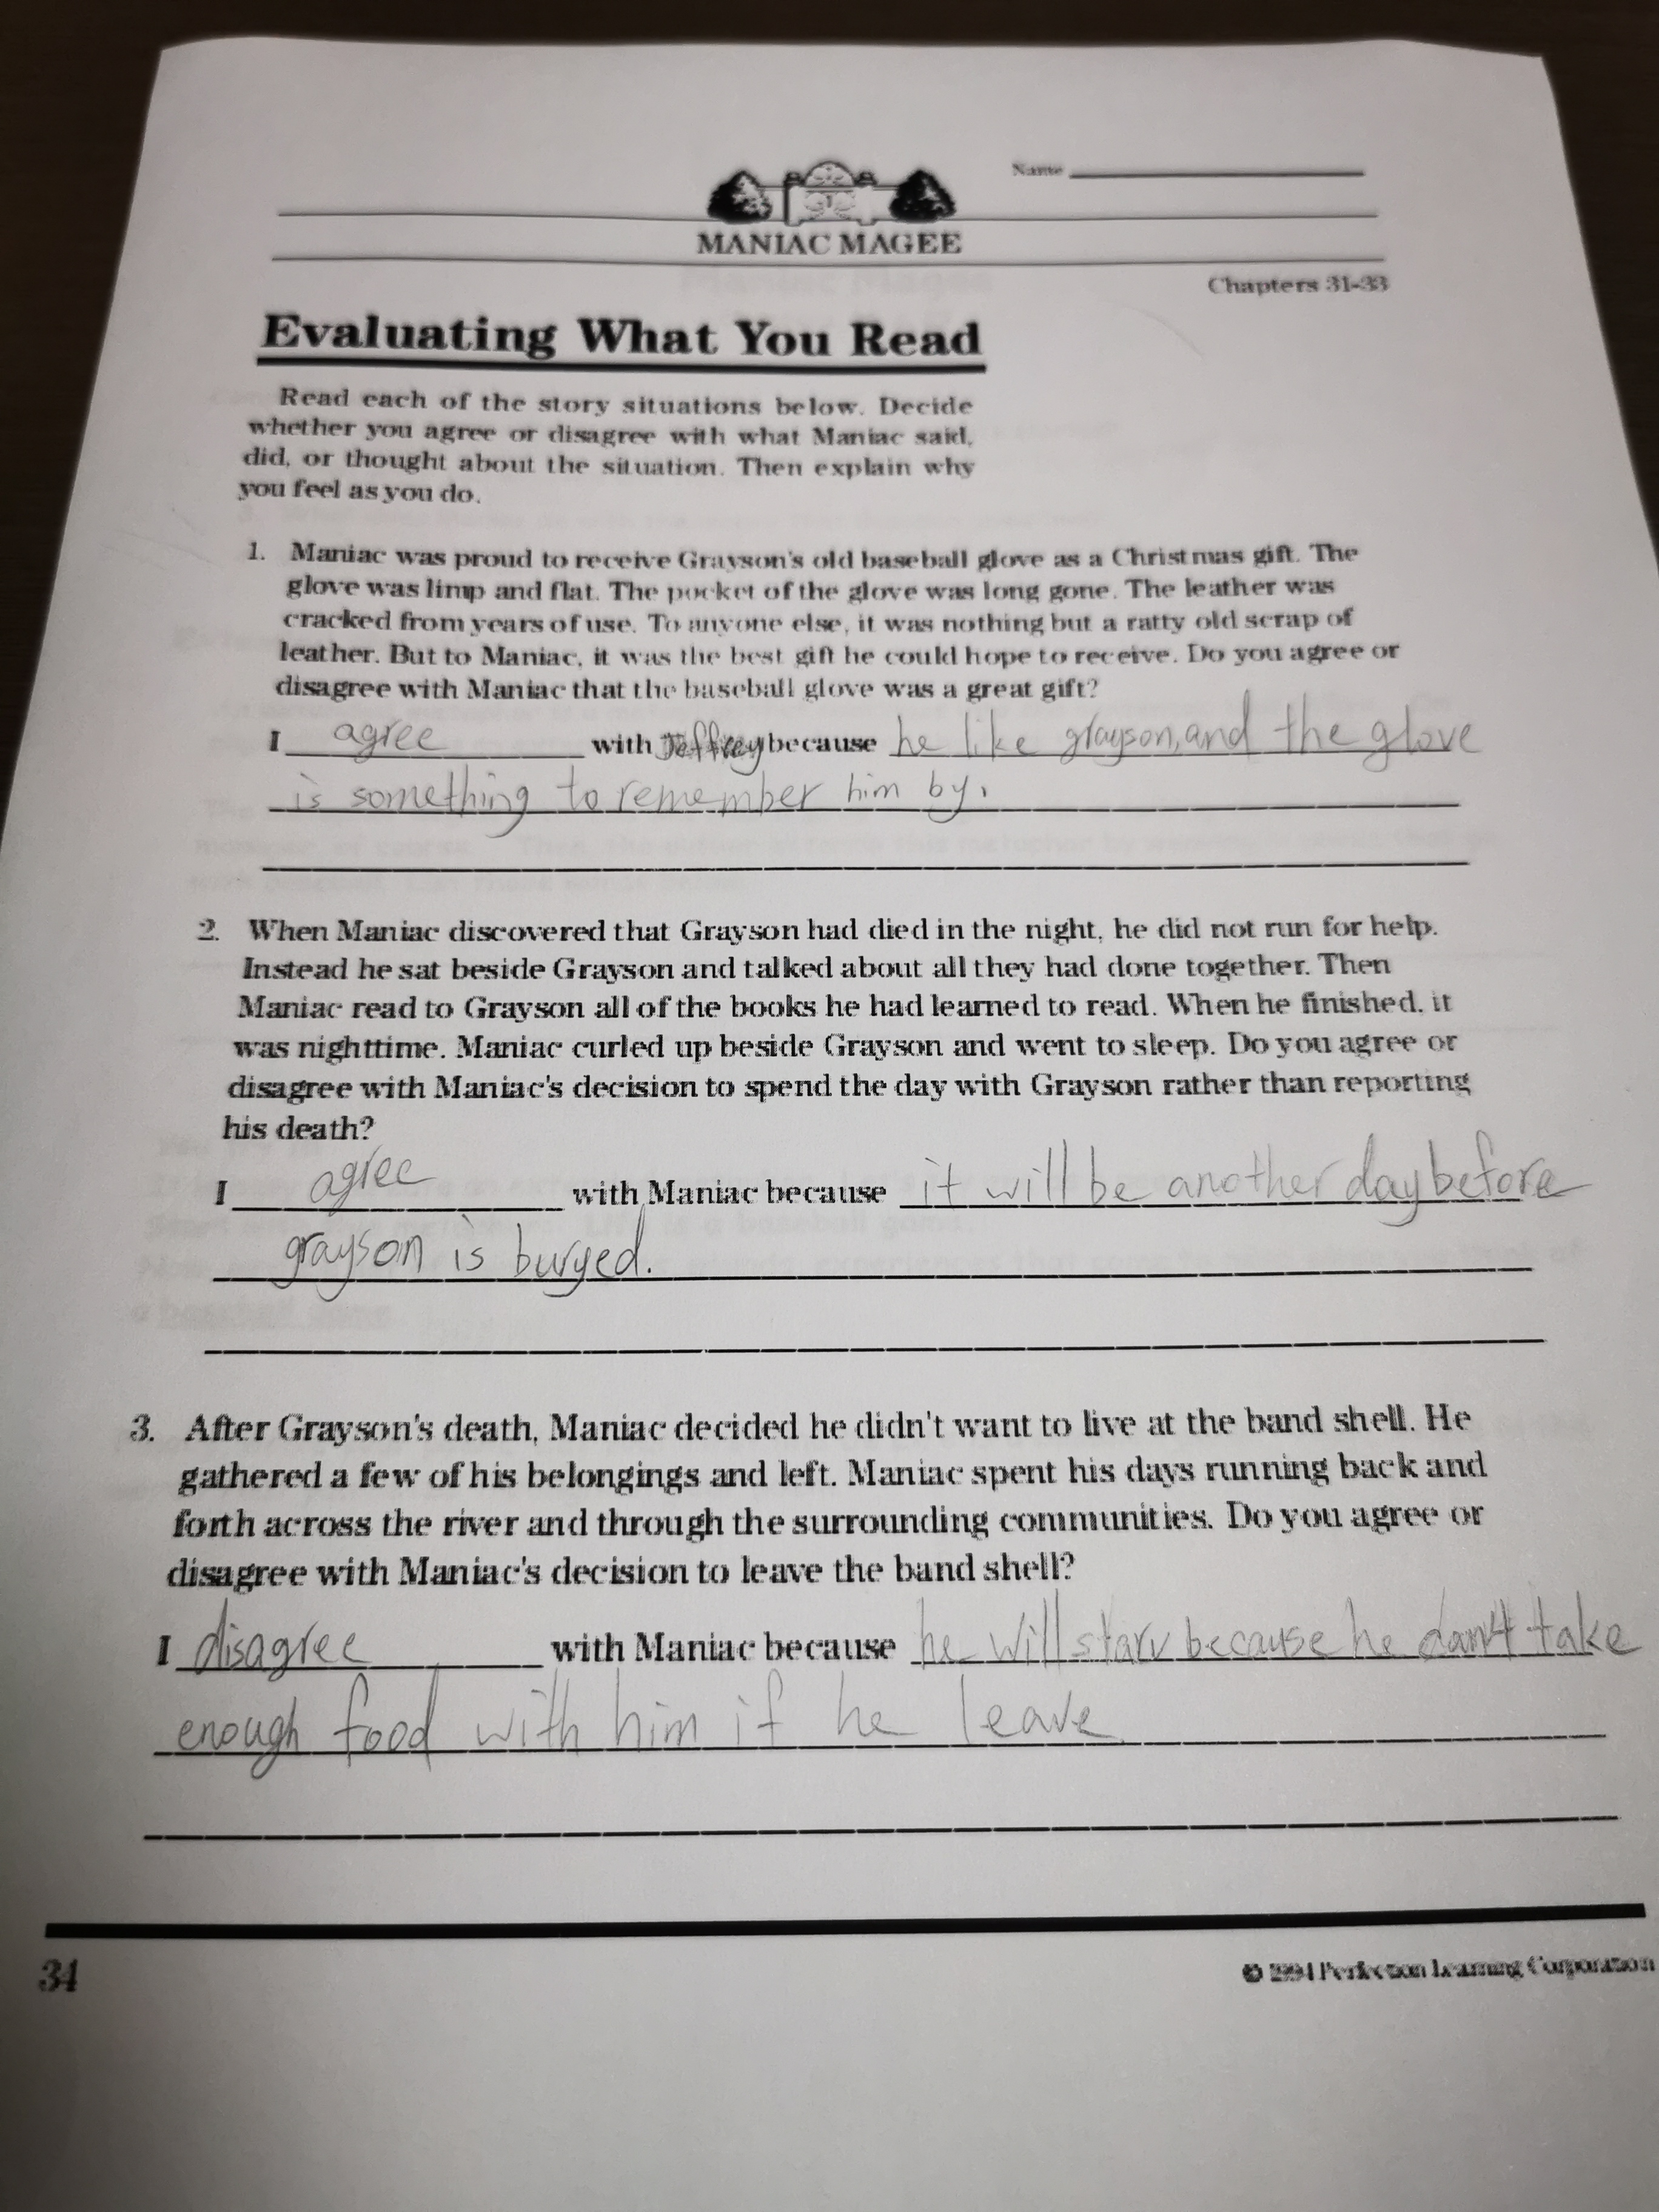 Name
MANIAC MAGEE
Chapters 31-33
Evaluating What You Read
Read each of the story situations below. Decide
whether you agree or disagree with what Maniac said,
did, or thought about the situation. Then explain why
you feel as you do.
1. Maniac was proud to receive Grayson's old baseball glove as a Christmas gift. The
glove was limp and flat. The pocket of the glove was long gone. The leather was
cracked from years of use. To anyone else, it was nothing but a ratty old scrap of
leather. But to Maniac, it was the best gift he could hope to receive. Do you agree or
disagree with Maniac that the baseball glove was a great gift?
I agree with Jeffrey because he like grayson, and the glove
is something to remember him by.
2. When Maniac discovered that Grayson had died in the night, he did not run for help.
Instead he sat beside Grayson and talked about all they had done together. Then
Maniac read to Grayson all of the books he had learned to read. When he finished, it
was nighttime. Maniac curled up beside Grayson and went to sleep. Do you agree or
disagree with Maniac's decision to spend the day with Grayson rather than reporting
his death?
I agree with Maniac because it will be another day before
grayson is buryed.
3. After Grayson's death, Maniac decided he didn't want to live at the band shell. He
gathered a few of his belongings and left. Maniac spent his days running back and
forth across the river and through the surrounding communities. Do you agree or
disagree with Maniac's decision to leave the band shell?
I disagree with Maniac because he will starv because he take
enough food with him if he leave
34
© 1994 Perfection Learning Corporation